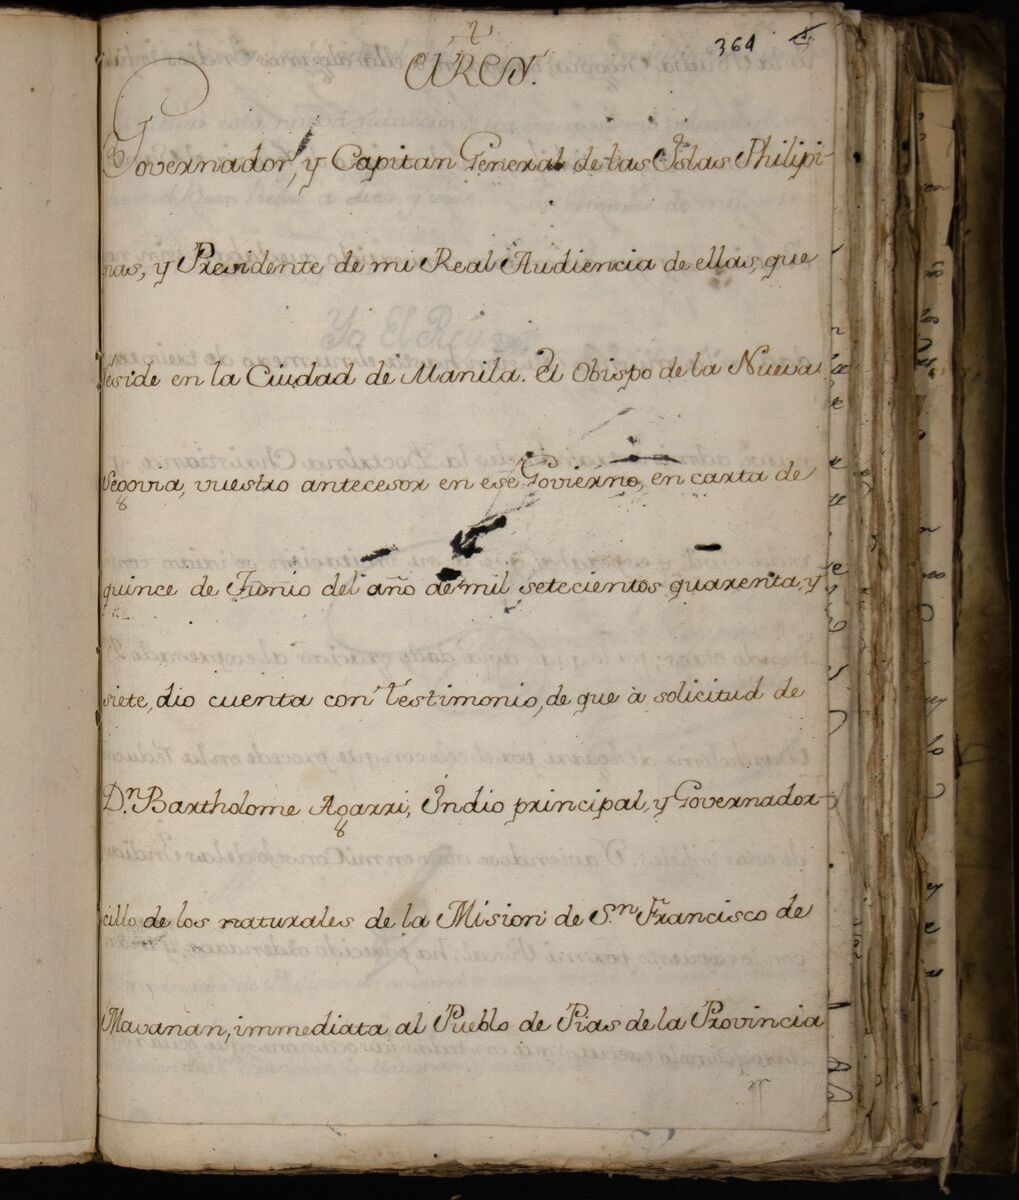 364
Governador, y Capitan General de las Yslas Philipi-
nas, y Presidente de mi Real Audiencia de ellas, que
reside en la Ciudad de Manila. El Obispo de la Nueva
Segovia, vuestro antecesor en ese Govierno, en carta de
quince de Junio del año de mil setecientos quarenta, y
siete, dio cuenta con testimonio, de que à solicitud de
Dn. Bartholome Agarri, Yndio principal, y Governador-
cillo de los naturales de la Mision de Sn. Francisco de
Mavanan, immediata al Pueblo de Pias de la Provincia